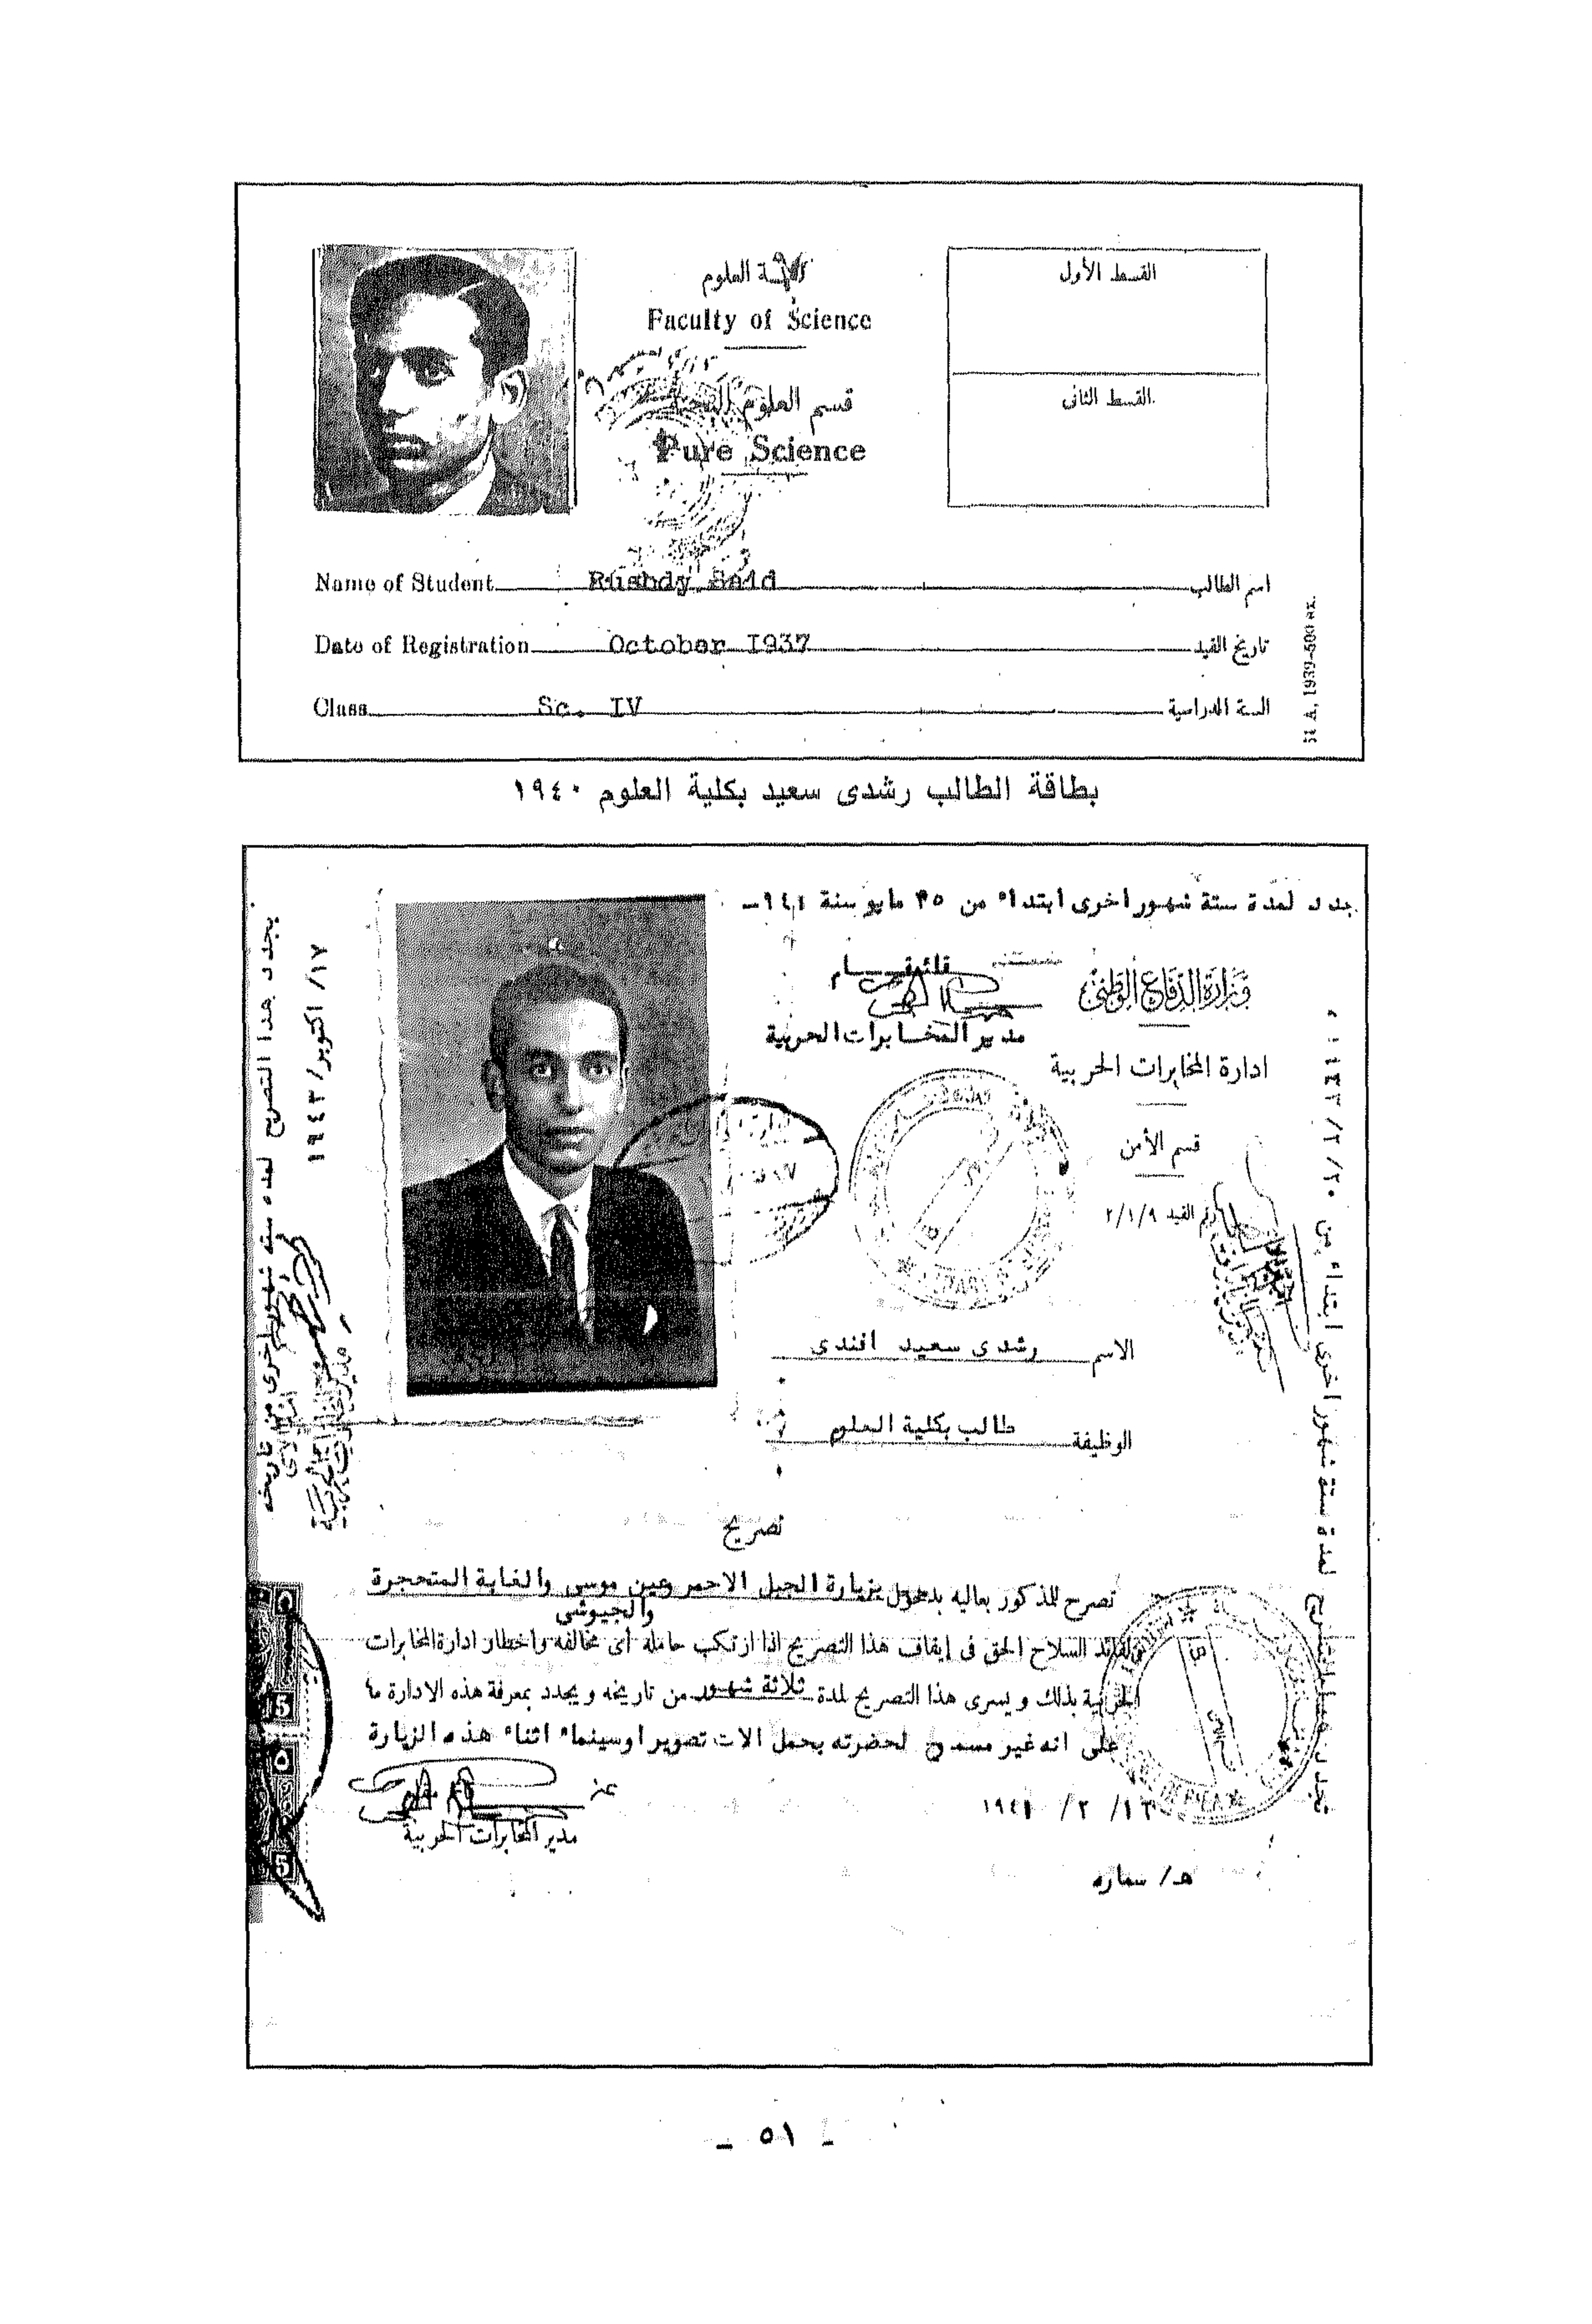 كلية العلوم
Faculty of Science
قسم العلوم
Pure Science
القسط الأول
القسط الثانى
Name of Student Rushdy Said اسم الطالب
Date of Registration October 1937 تاريخ القيد
Class Sc. IV السنة الدراسية
بطاقة الطالب رشدى سعيد بكلية العلوم ١٩٤٠
جدد لمدة ستة شهور اخرى ابتداء من ٢٥ مايو سنة
قائمقام
مدير المخابرات الحربية
وزارة الدفاع الوطنى
ادارة المخابرات الحربية
قسم الأمن
رقم القيد ٢/١/٩
الاسم رشدى سعيد افندى
الوظيفة طالب بكلية العلوم
تصريح
نصرح للمذكور بعاليه بدخول بزيارة الجبل الاحمر وعين موسى والغابة المتحجرة
والجيوشى
ولقائد السلاح الحق فى إيقاف هذا التصريح اذا ارتكب حامله أى مخالفة واخطار ادارة المخابرات
الحربية بذلك ويسرى هذا التصريح لمدة ثلاثة شهور من تاريخه ويجدد بمعرفة هذه الادارة ما
على انه غير مسموح لحضرته بحمل الات تصوير اوسينماء اثناء هذه الزيارة
مدير المخابرات الحربية
هـ/ سماره
يجدد هذا التصريح لمدة ستة شهور اخرى من تاريخه
١٧/ اكتوبر/ ١٩٤٣
يجدد هذا التصريح لمدة ستة شهور اخرى ابتداء من
- ٥١ -